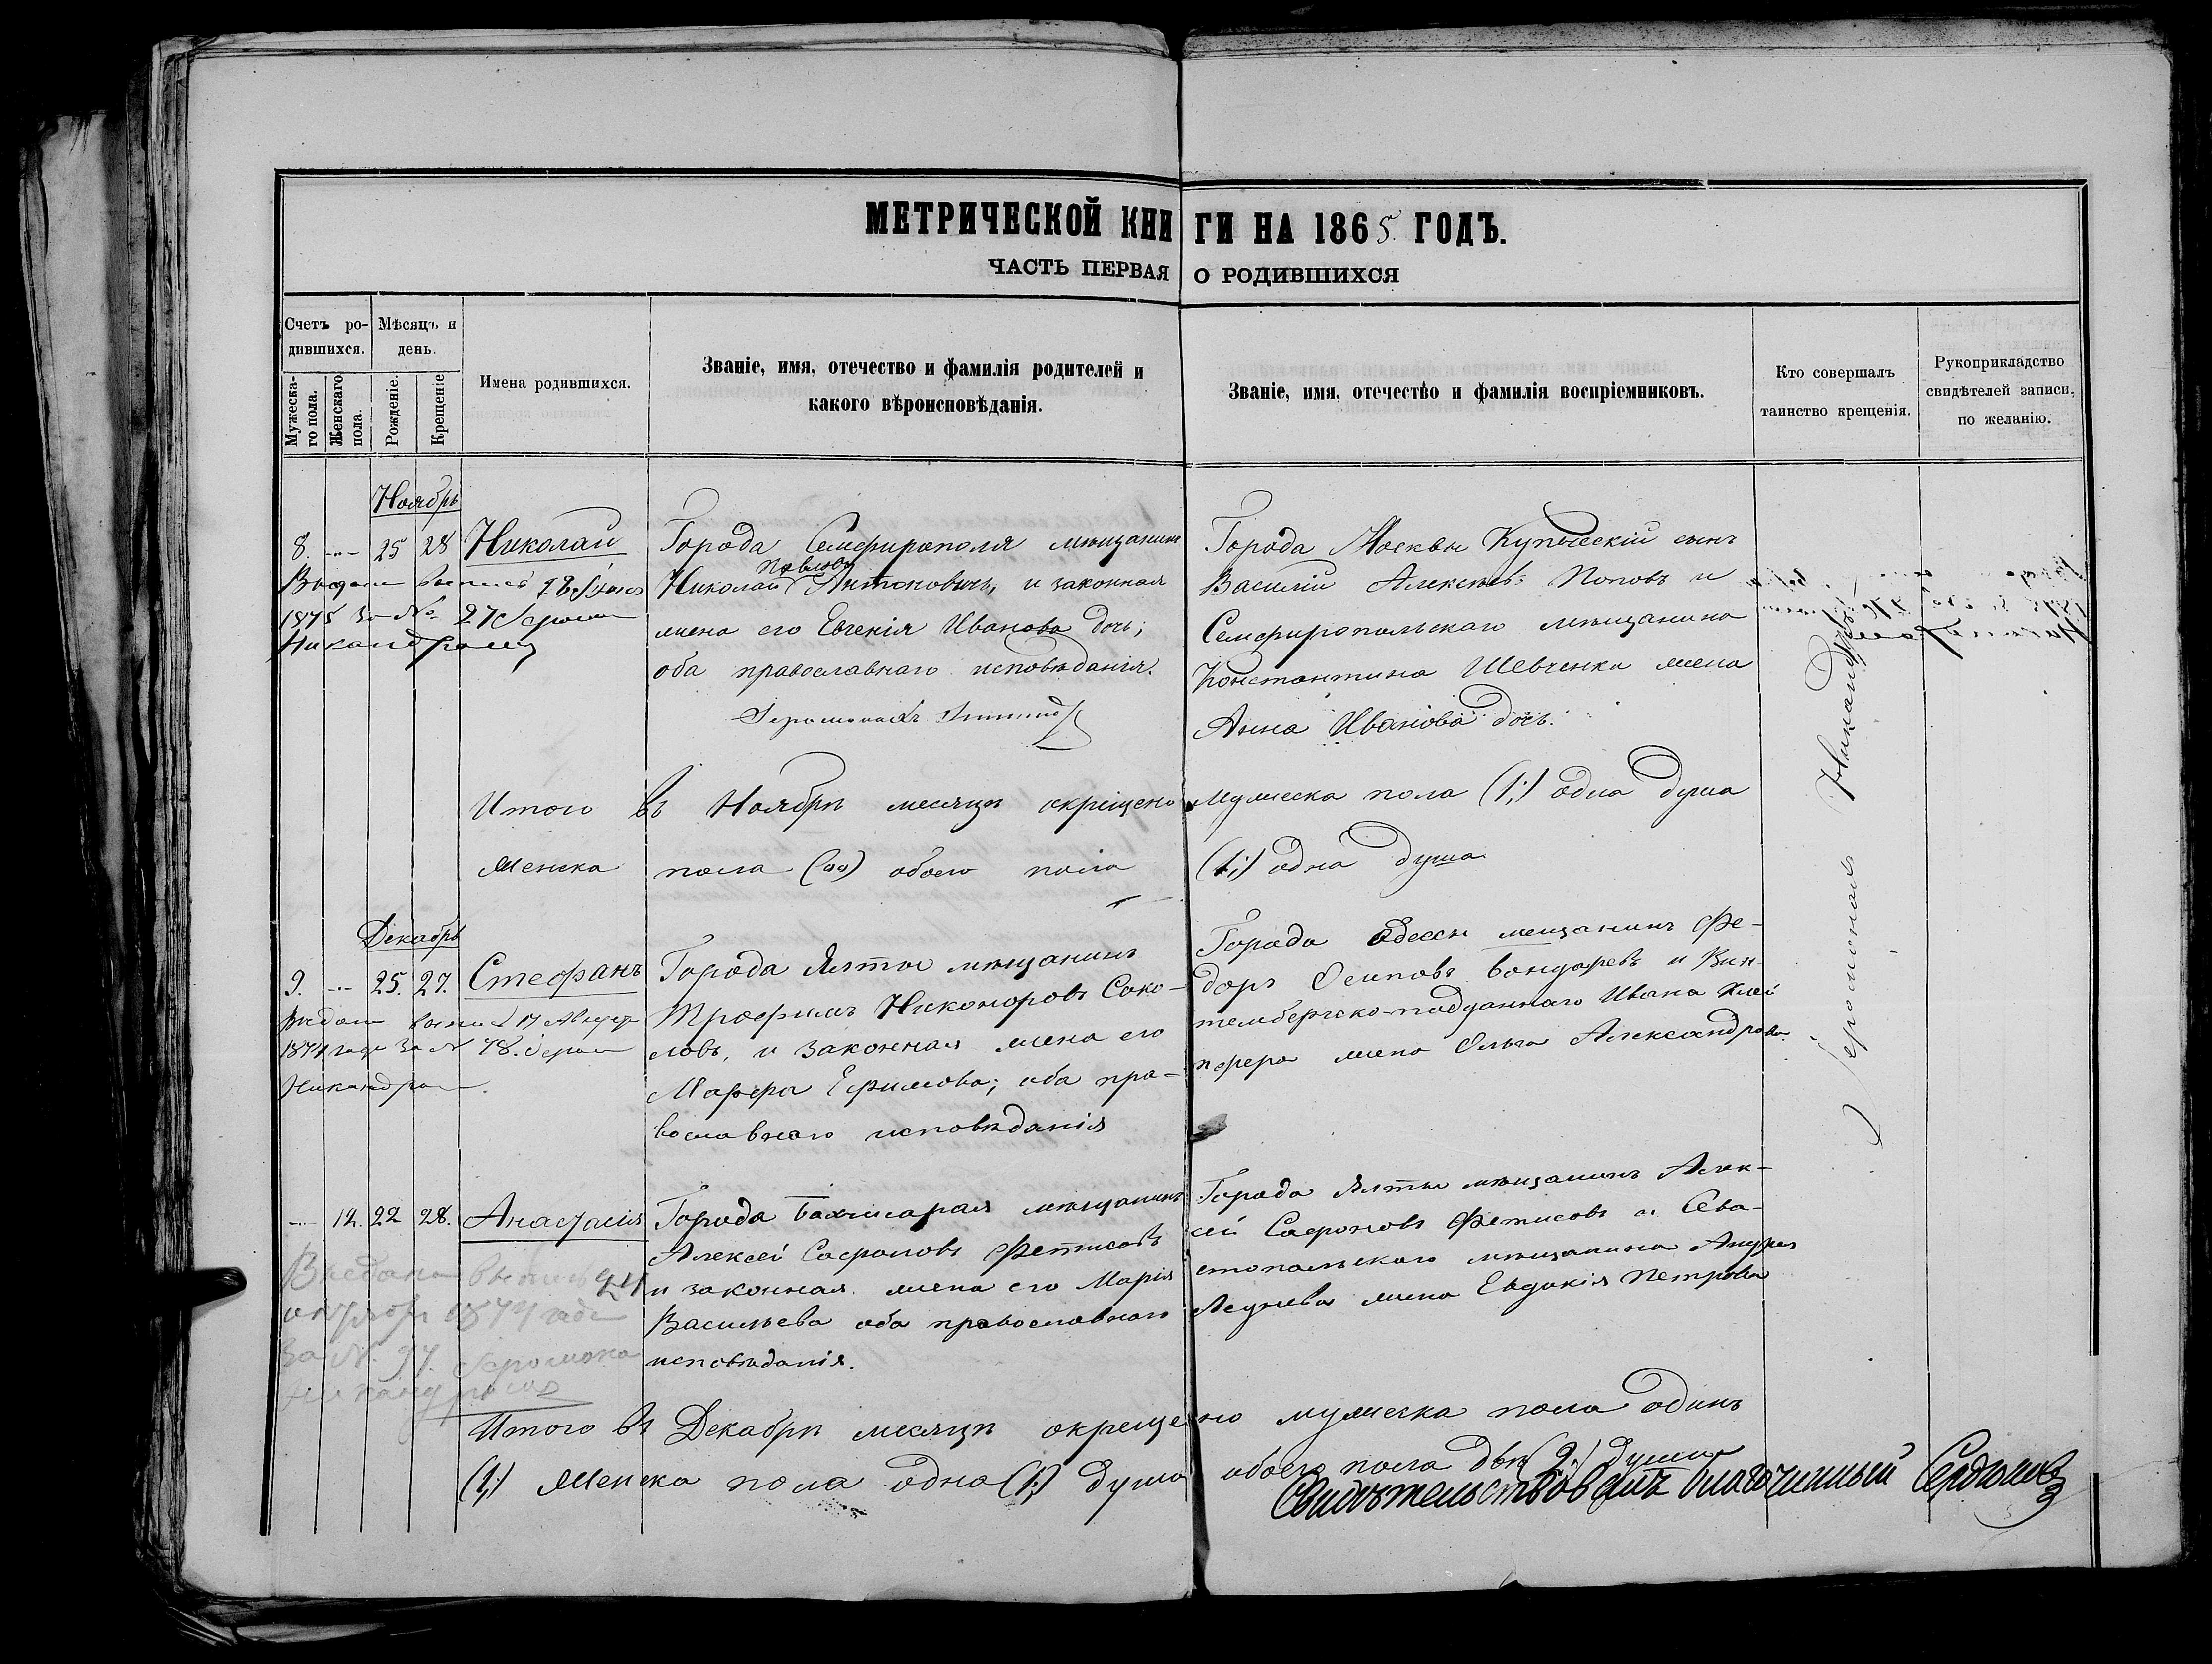 МЕТРИЧЕСКОЙ КНИГИ НА 1865 ГОДЪ.
ЧАСТЬ ПЕРВАЯ О РОДИВШИХСЯ
Счетъ ро-
дившихся.
Мѣсяцъ и
день.
Мужеска-
го пола.
Женскаго
пола.
Рожденіе.
Крещеніе.
Имена родившихся.
Званіе, имя, отечество и фамилія родителей и
какого вѣроисповѣданія.
Званіе, имя, отечество и фамилія воспріемниковъ.
Кто совершалъ
таинство крещенія.
Рукоприкладство
свидѣтелей записи,
по желанію.
Ноябрь
8. -"- 25 28 Николай
1875 за № 27
Города Семферополя мѣщанинъ
Николай Павловъ Антоновичь, и законная
жена его Евгенія Иванова дочь;
оба православнаго исповѣданія.
Іеромонахъ
Города Москвы Купеческій сынъ
Василій Алексѣевъ Поповъ и
Семферопольскаго мѣщанина
Константина Шевченки жена
Анна Иванова дочь.
Итого въ Ноябрѣ месяцѣ окрещено Мужеска пола (1;) одна душа
Женска пола ("") обоего пола (1;) одна душа
Декабрь
9. -"- 25. 27. Стефанъ
Никандромъ.
Города Ялты мѣщанинъ
Трофимъ Никоноровъ Соко-
ловъ, и законная жена его
Марфа Ефимова; оба пра-
вославнаго исповѣданія
Города Одессы мещанинъ Фе-
доръ Осиповъ Бондаревъ и Вин-
тембергско-подданнаго Ивана Клей
пфера жена Ольга Александрова.
Іеромонахъ Никандръ
-"- 12. 22 28. Анастасія
Выдана выпись 24
октября 1874 года
за №. 97. Іеромона
Никандромъ
Города Бахчисарая мѣщанинъ
Алексей Софроновъ Фетисовъ
и законная жена его Марія
Васильева оба православнаго
исповѣданія.
Города Ялты мѣщанинъ Алек-
сѣй Софроновъ Фетисовъ и Сева-
стопольскаго мѣщанина Андрея
жена Евдокія Петрова
Итого въ Декабрѣ месяцѣ окрещено мужеска пола одинъ
(1;) Женска пола одна (1;) душа обоего пола двѣ (2;) души
Свидѣтельствовалъ благочинный Сердюковъ